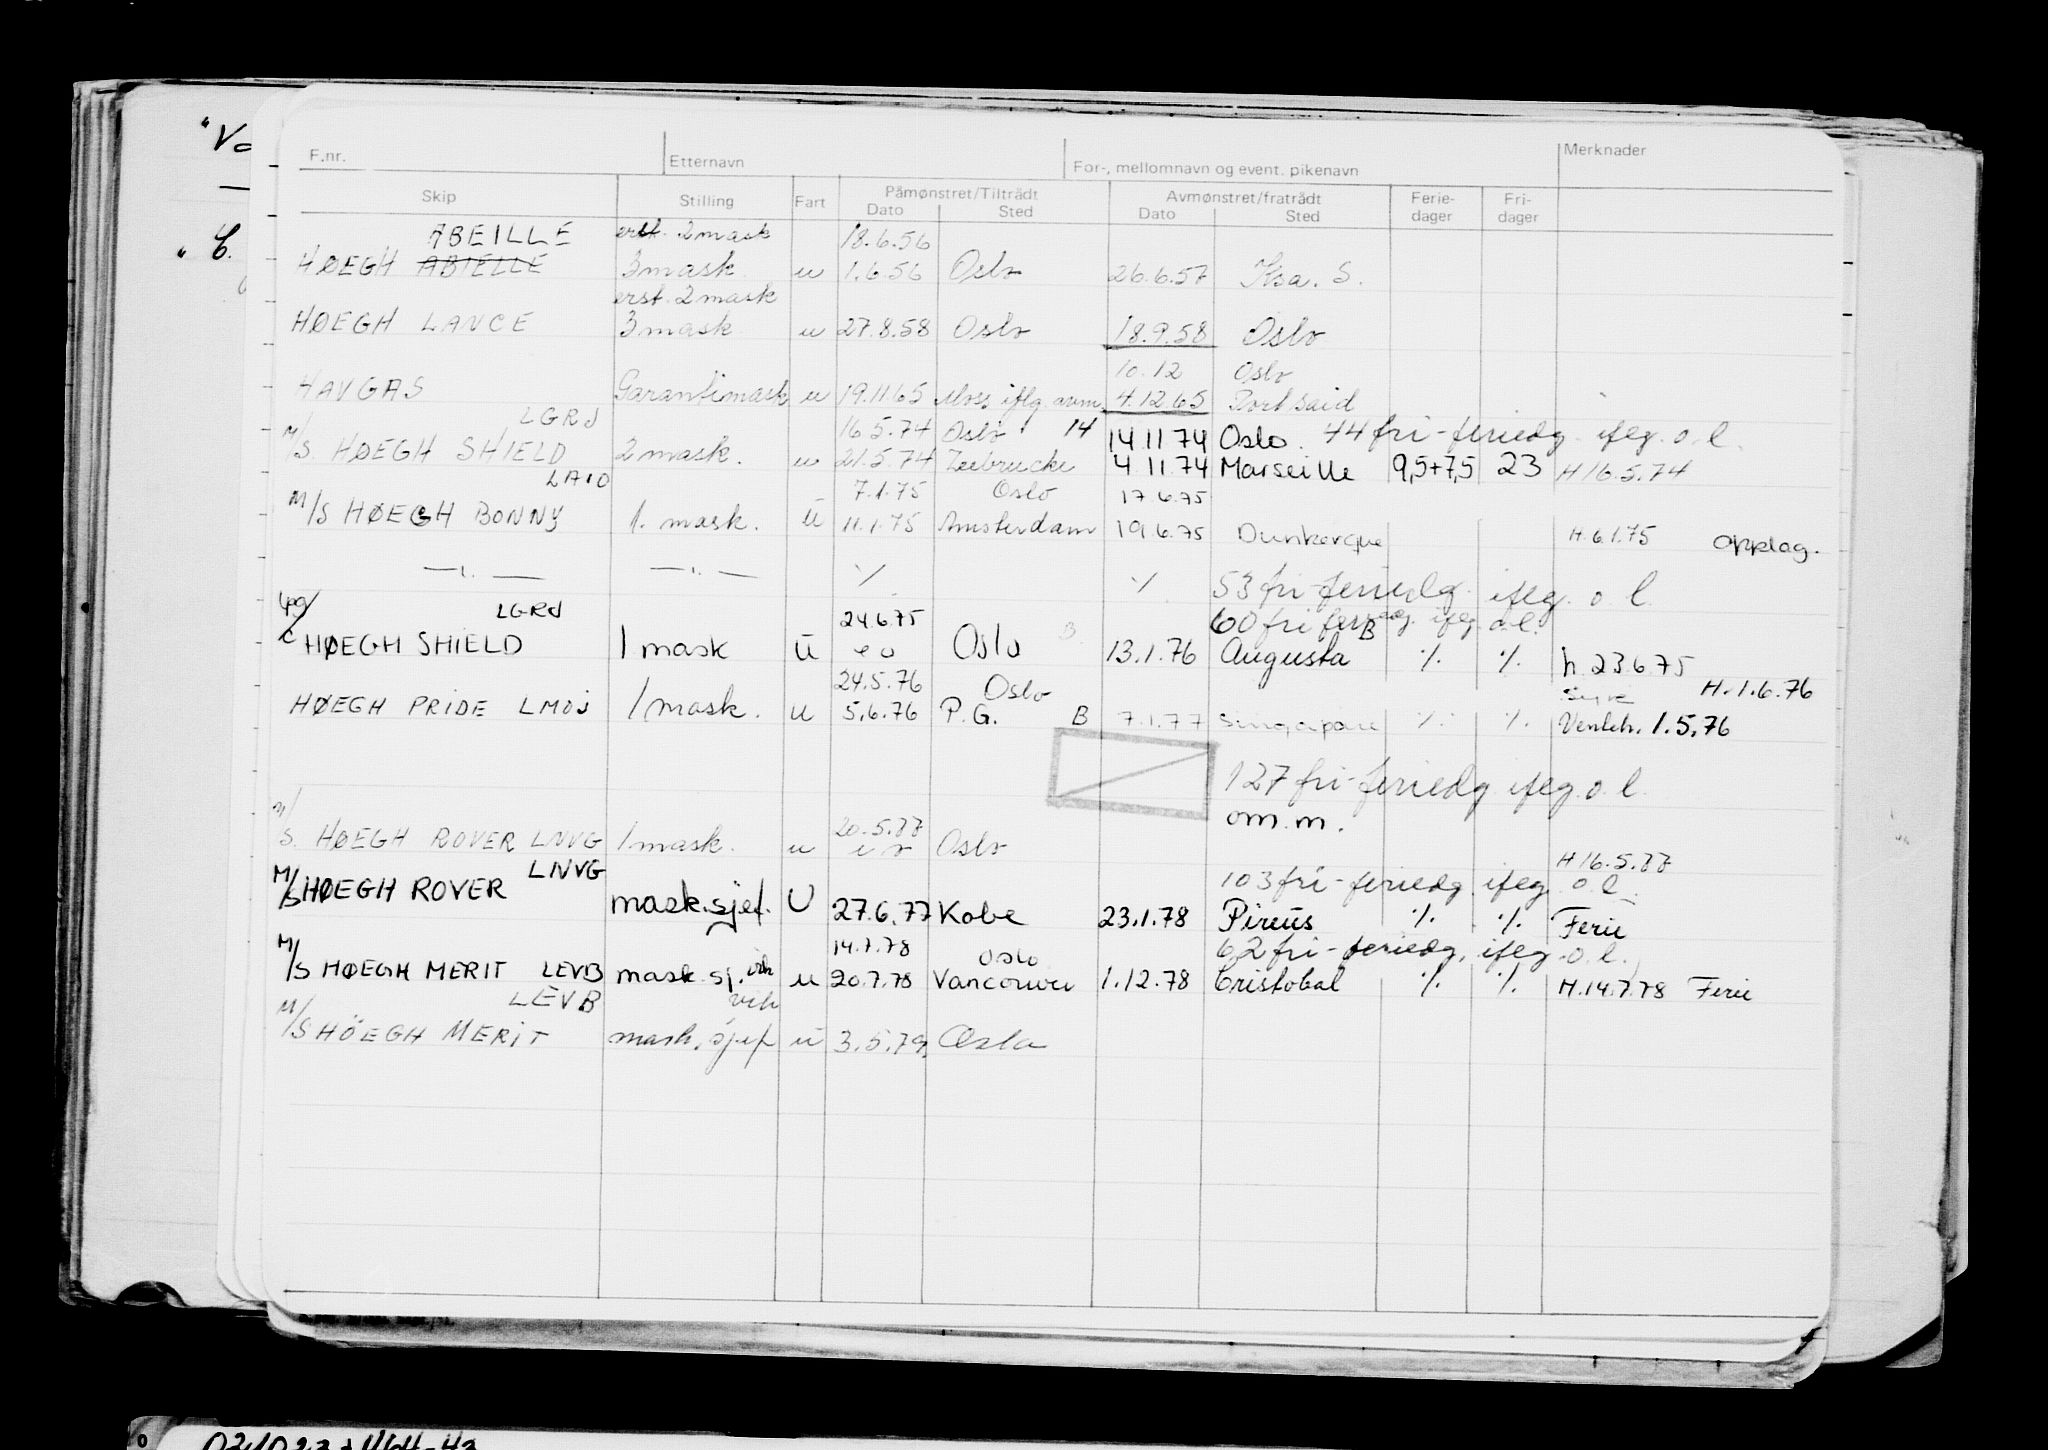 F.nr. Etternavn For-, mellomnavn og event. pikenavn Merknader
Skip Stilling Fart Påmønstret/Tiltrådt Avmønstret/fratrådt Ferie- Fri-
Dato Sted Dato Sted dager dager
ABEILLE erst. 2mask 18.6.56
HØEGH ABIELLE 3mask. u 1.6.56 Oslo 26.6.57 S.
erst. 2mask
HØEGH LANCE 3mask u 27.8.58 Oslo 18.9.58 Oslo
10.12 Oslo
HAVGAS Garantimask u 19.11.65 Moss iflg. avm. 4.12.65 Port Said
LGRJ 16.5.74 Oslo 14 14.11.74 Oslo. 44 fri-feriedg. iflg. o.l.
M/S HØEGH SHIELD 2 mask. u 21.5.74 Zeebrucke 4.11.74 Marseille 9,5+7,5 23 H 16.5.74
LAIO 7.1.75 Oslo 17.6.75
M/S HØEGH BONNY 1. mask. u 11.1.75 Amsterdam 19.6.75 Dunkerque H.6.1.75 opplag.
—"— —"— ./. ./. 53 fri-feriedg. iflg. o.l.
LPG/C LGRJ 24.6.75 60 fri feriedg. iflg. o.l.
HØEGH SHIELD 1 mask ū e o Oslo B. 13.1.76 Augusta B ./. ./. h. 23.6.75
24.5.76 Oslo H.1.6.76
HØEGH PRIDE LMOJ 1mask. u 5.6.76 P.G. B 7.1.77 Singapore ./. ./. Venteh. 1.5.76
127 fri-feriedg iflg. o.l.
om.m.
M/S. HØEGH ROVER LNVG 1mask. u 20.5.77 Oslo H 16.5.77
LNVG 103 fri-feriedg. iflg. o.l.
M/S HØEGH ROVER mask.sjef. U 27.6.77 Kobe 23.1.78 Pireus ./. ./. Ferie
14.7.78 Oslo 62 fri-feriedg. iflg. o.l.
M/S HØEGH MERIT LEVB mask.sj. vik u 20.7.78 Vancouver 1.12.78 Cristobal ./. ./. H.14.7.78 Ferie
LEVB vik
M/S HÖEGH MERIT mask.sjef ū 3.5.79. Oslo